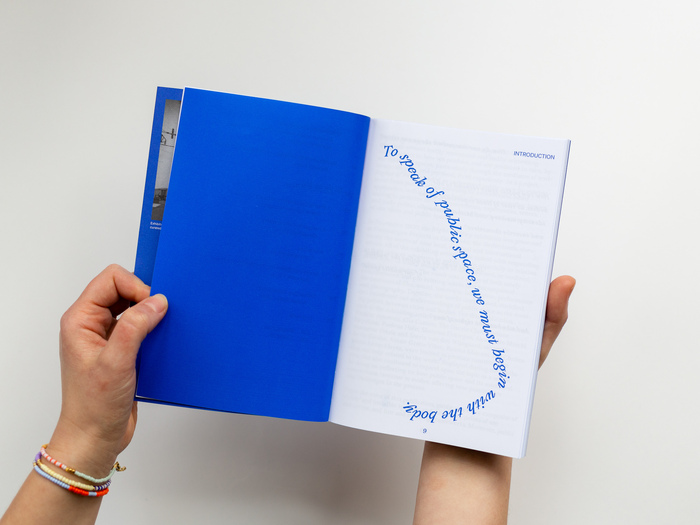 INTRODUCTION
To speak of public space, we must begin with the body.
9